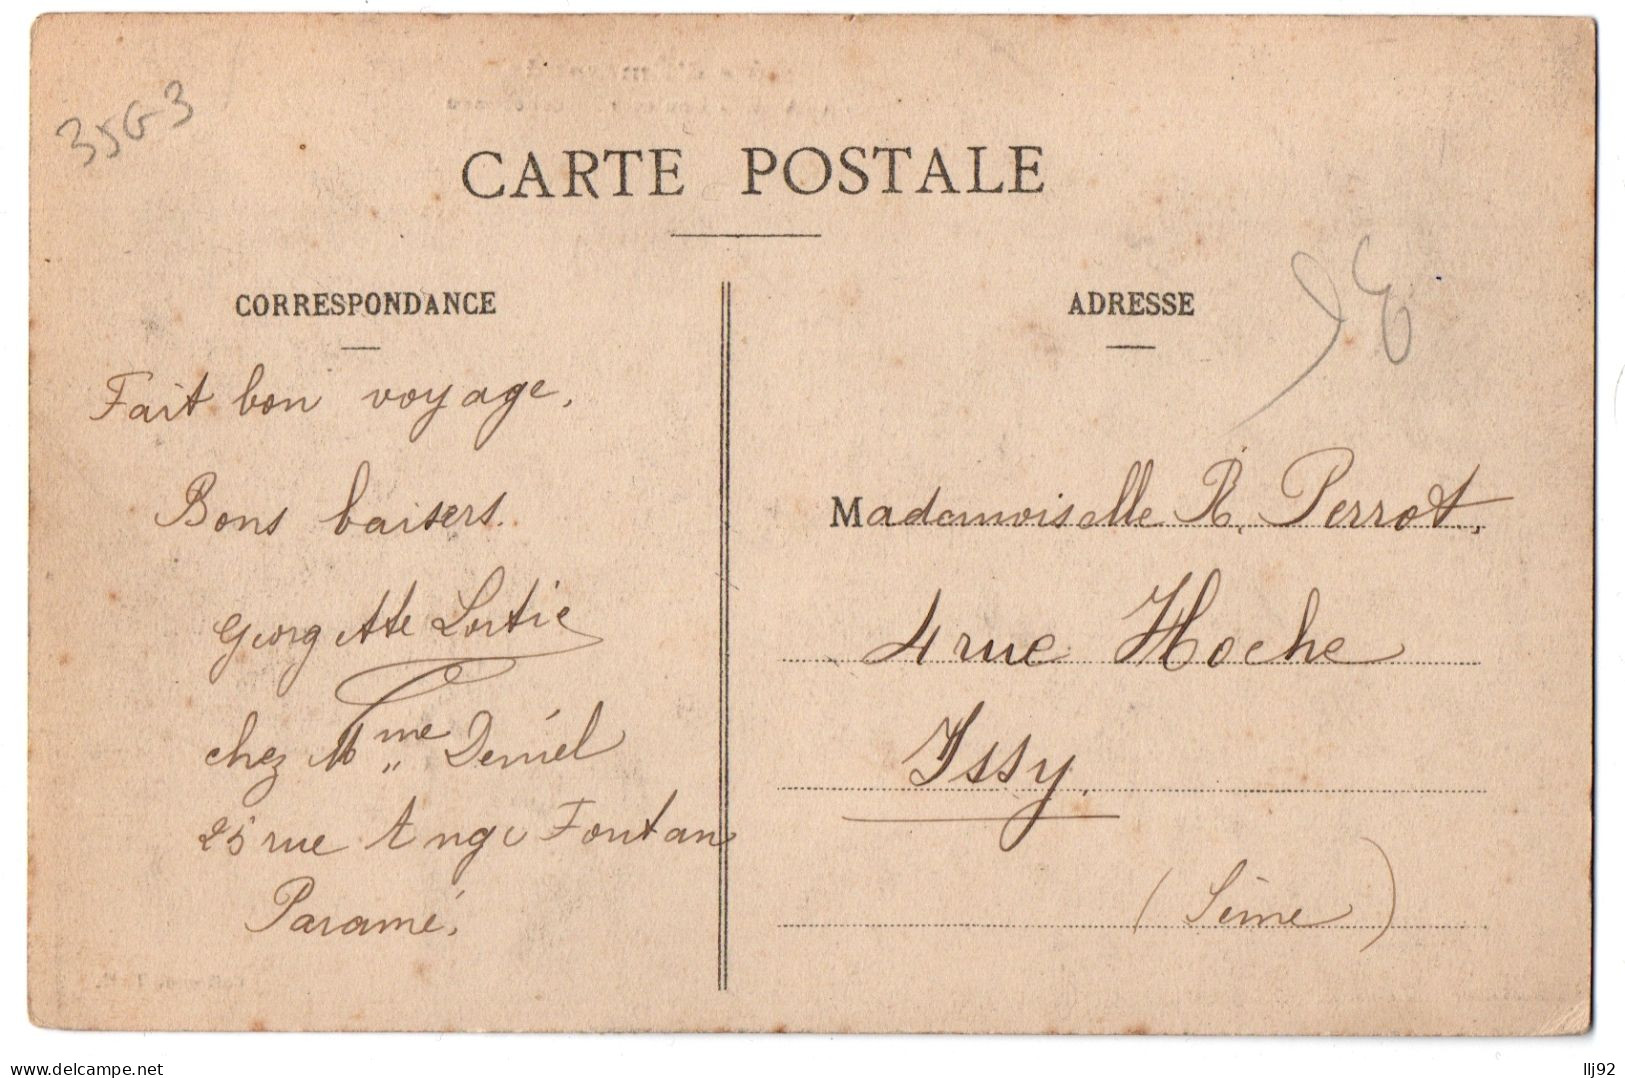 35G3
CARTE POSTALE
CORRESPONDANCE
Fait bon voyage.
Bons baisers.
Georgette Lortie
chez Mme Deniel
25 rue Ange Fontan
Paramé.
ADRESSE
Mademoiselle R. Perrot.
4 rue Hoche
Issy.
(Seine)
llj92